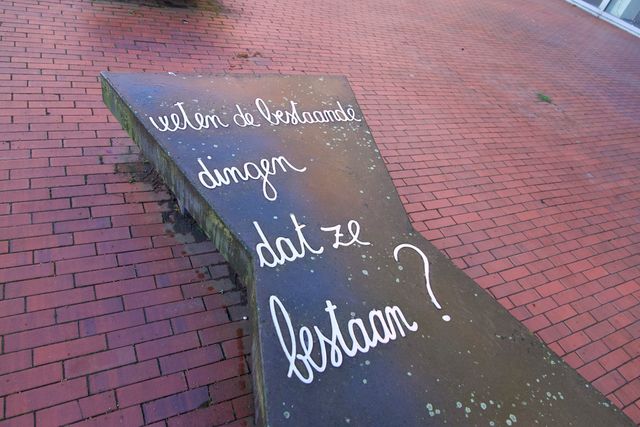 weten de bestaande
dingen
dat ze
bestaan?